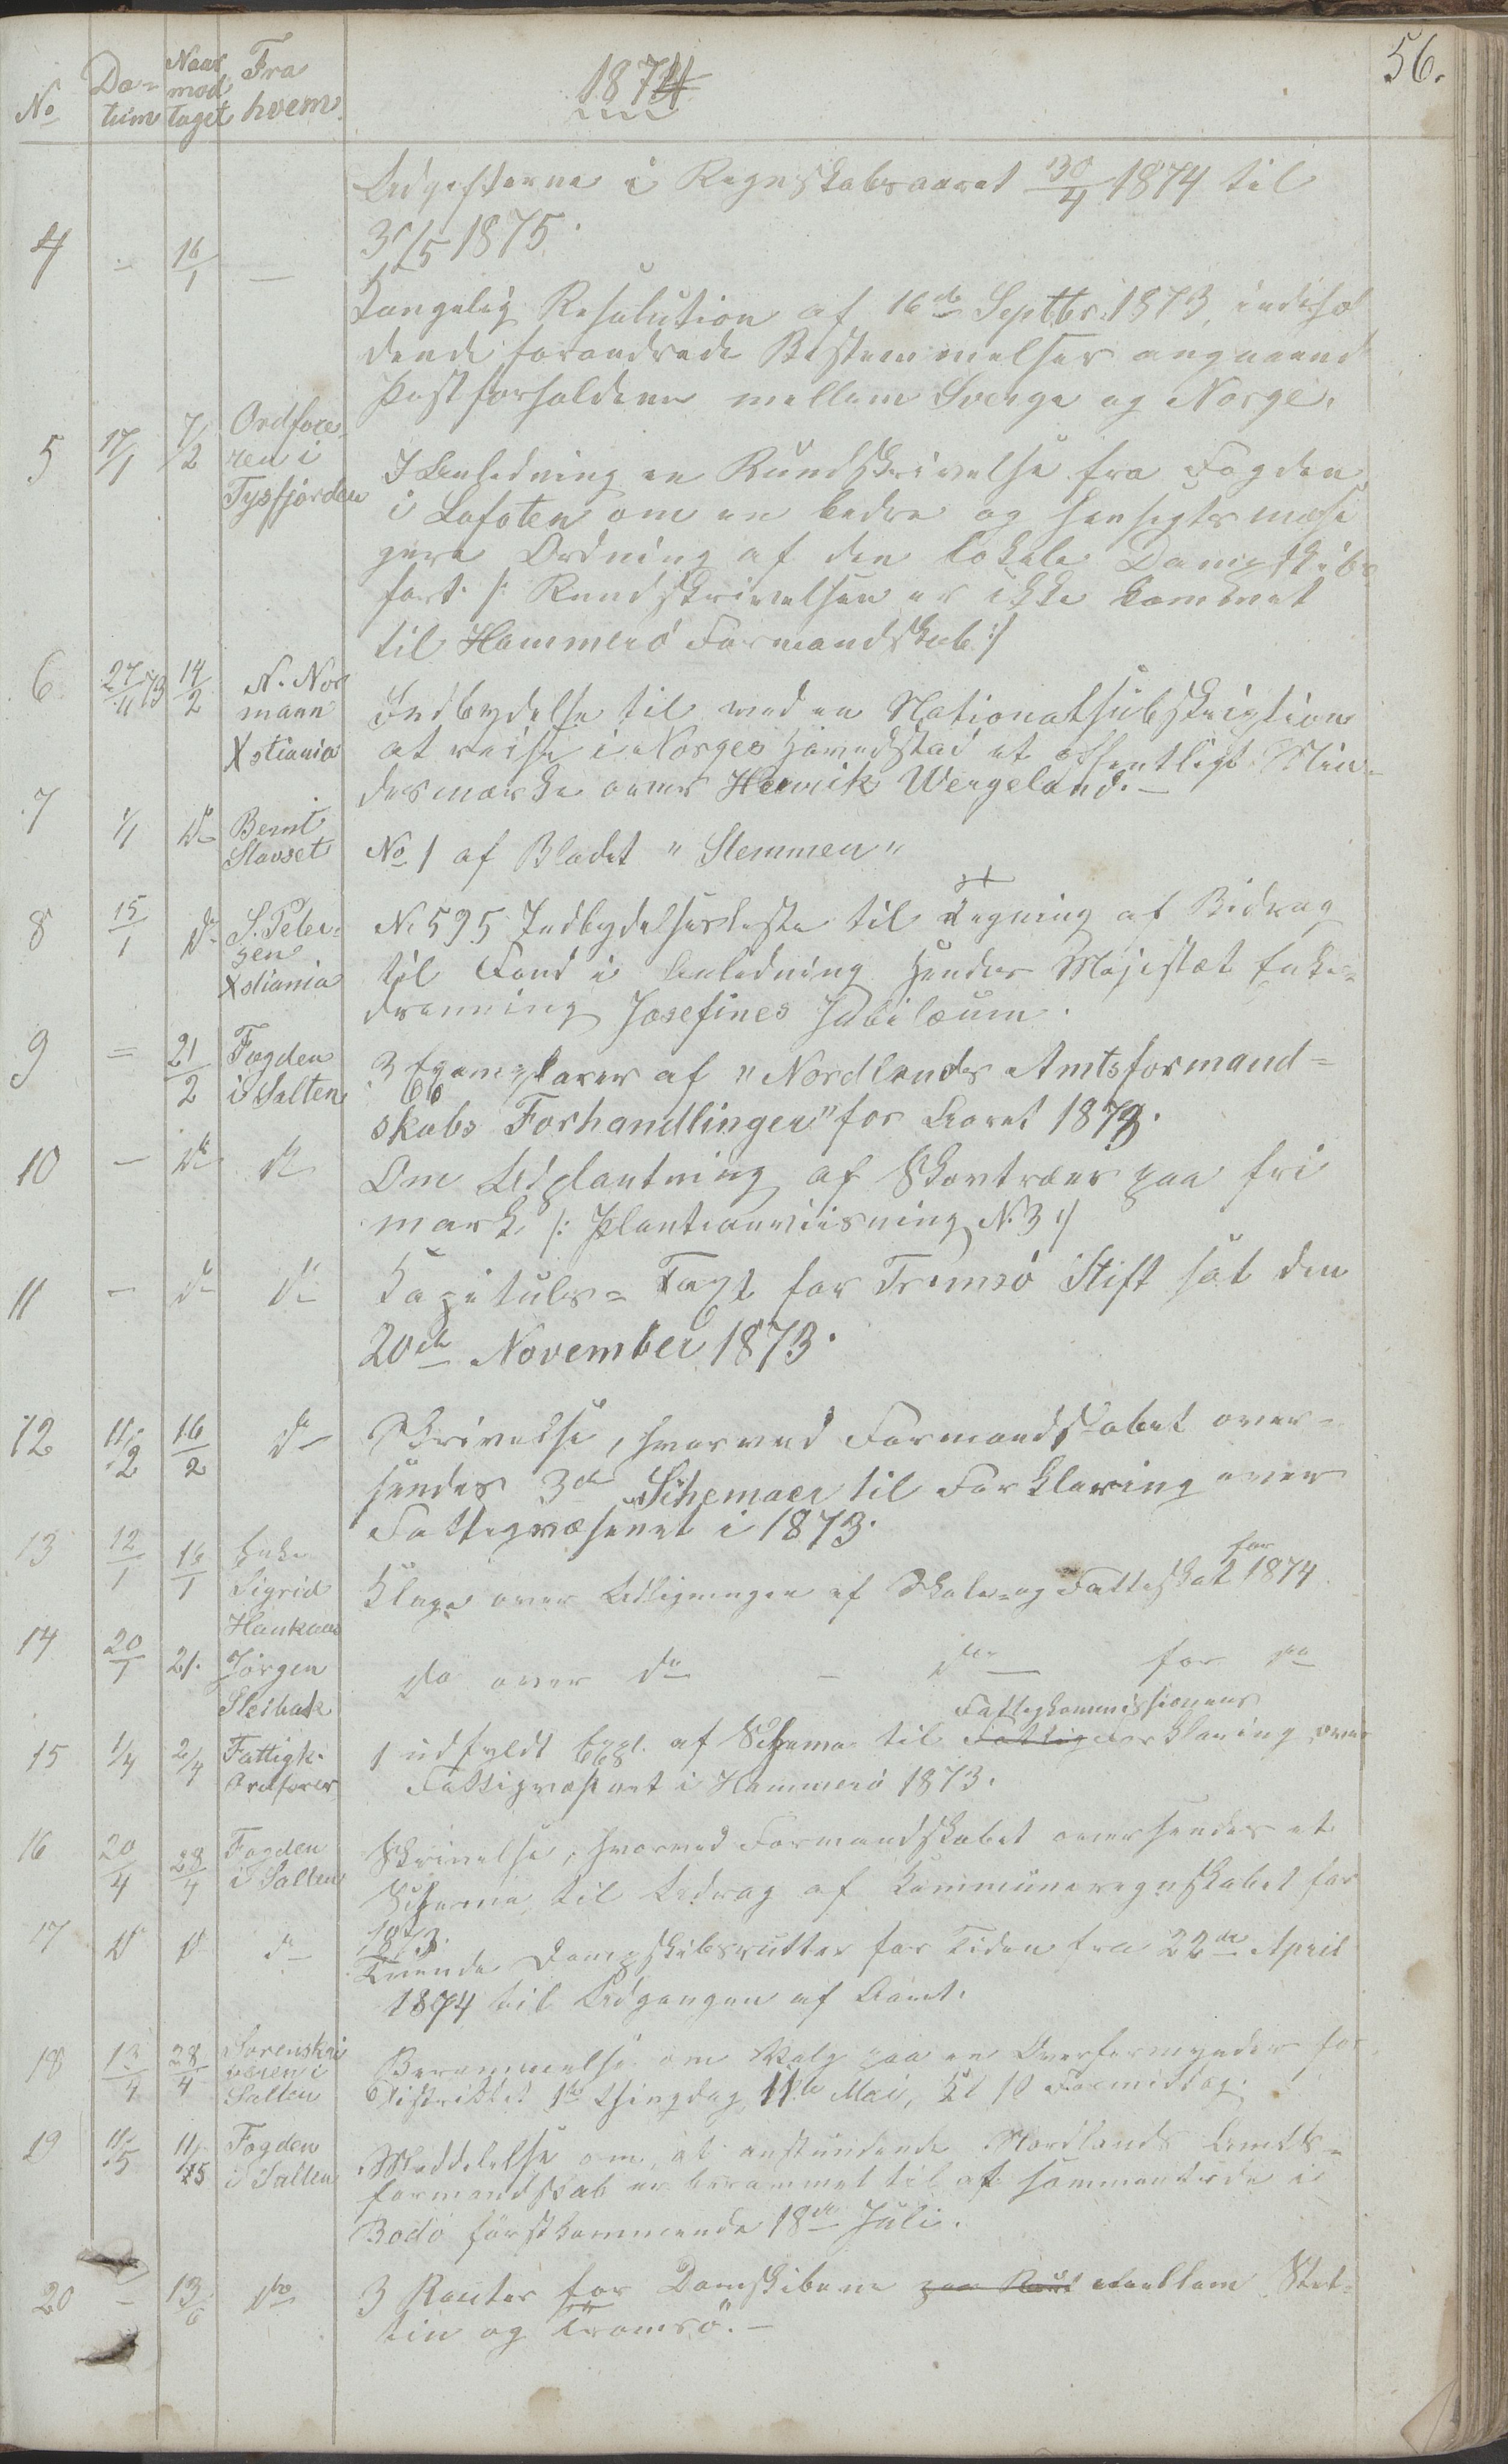 56.
No Da= Naar Fra
tum mod hvem.
taget
1874
Udgifterne i Regnskabsaaret 30/4 1874 til
31/5 1875.
4 - 16/1 -
Kongelig Resolution af 16de Septbr. 1873, indehol
dende forandrede Bestemmelser angaaende
Postforholdene mellem Sverge og Norge.
5 17/1 7/2 Ordføre-
ren i
Tysfjorden
I Anledning en Rundskrivelse fra Fogden
i Lofoten om en bedre og hensigtsmæssi
gere Ordning af den lokale Dampskibs
fart. /: Rundskrivelsen er ikke kommet
til Hammerø Formandskab :/
6 27/11 73 14/2 N. Nor
mann
Xstiania
Indbydelse til ved en Nationalsubskription
at reise i Norges Hovedstad et offentligt Min-
desmærke over Henrik Wergeland. -
7 1/1 do Bernt
Stavset
No 1 af Bladet "Stemmen"
8 15/1 do S. Peter-
sen
Xstiania
N. 595 Indbydelsesliste til Tegning af Bidrag
til Fond i Anledning Hendes Majestæt Enke=
dronning Josefines Jubilæum.
9 = 21/2 Fogden
i Salten
3 Exemplarer af "Nordlands Amtsformand=
skabs Forhandlinger" for Aaret 1873.
10 - do do
Om Udplantning af Skovtræer paa fri
mark /: Planteanviisning N. 3 :/
11 - do do
Kapituls= Taxt for Tromsø Stift sat den
20de November 1873.
12 11/2 16/2 do
Skrivelse, hvorved Formandskabet over-
sendes 3de Schemaer til Forklaring over
Fattigvæsenet i 1873.
13 12/1 16/1 Enke
Sigrid
Haukaas
Klage over Udligningen af Skole- og Fatteskat for 1874
14 20/1 21. Jørgen
Sleibak
do over do - do for do
15 1/4 2/4 Fattigk.
Ordfører
1 udfyldt Expl. af Schema til Fattig Fattigkommissionens Forklaring over
Fattigvæsenet i Hammerø 1873.
16 20/4 28/4 Fogden
i Salten
Skrivelse, hvorved Formandskabet oversendes et
Schema til Uddrag af Kommuneregnskabet for
1873.
17 do do do
Tvende Dampskibsrutter for Tiden fra 22de April
1874 til Udgangen af Aaret.
18 13/4 28/4 Sorenskri
veren i
Salten
Berammelse om Valg paa en Overformynder for
Distriktet 1ste Thingdag 11te Mai, Kl 10 Formiddag.
19 11/5 11/5 Fogden
i Salten
Meddelelse om, at anstundende Nordlands Amts=
formandskab er berammet til at sammentræde i
Bodø førstkommende 18de Juli.
20 - 13/6 do
3 Router for Damskibene paa Rout mellem Stet-
tin og Tromsø. -